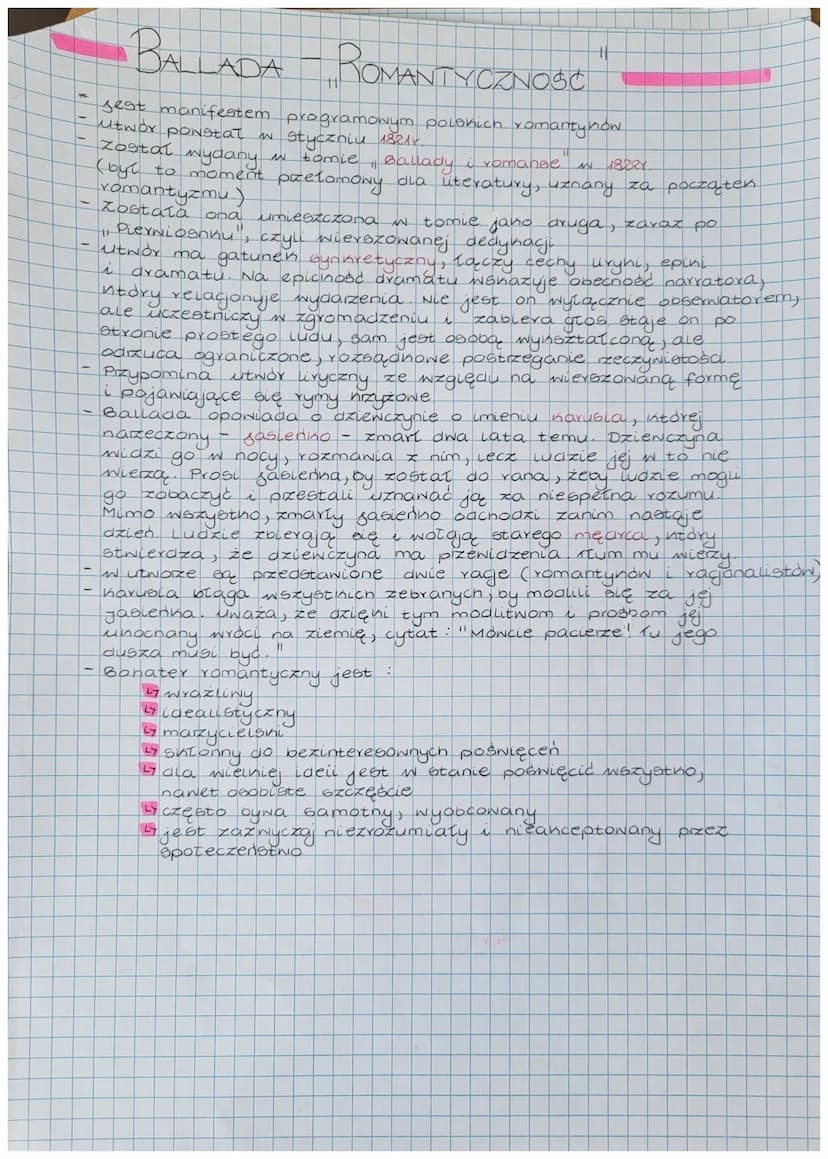 BALLADA - „ROMANTYCZNOŚĆ"
- jest manifestem programowym polskich romantyków
- utwór powstał w styczniu 1821r.
- został wydany w tomie „Ballady i romanse" w 1822r.
(był to moment przełomowy dla literatury, uznany za początek
romantyzmu.)
- Została ona umieszczona w tomie jako druga, zaraz po
„Pierwiosnku", czyli wierszowanej dedykacji
- utwór ma gatunek synkretyczny, łączy cechy liryki, epiki
i dramatu. Na epickość dramatu wskazuje obecność narratora,
który relacjonuje wydarzenia. Nie jest on wyłącznie obserwatorem,
ale uczestniczy w zgromadzeniu i zabiera głos. Staje on po
stronie prostego ludu, sam jest osobą wykształconą, ale
odrzuca ograniczone, rozsądkowe postrzeganie rzeczywistości.
- Przypomina utwór liryczny ze względu na wierszowaną formę
i pojawiające się rymy krzyżowe
- Ballada opowiada o dziewczynie o imieniu Karusia, której
narzeczony - Jasieńko - zmarł dwa lata temu. Dziewczyna
widzi go w nocy, rozmawia z nim, lecz ludzie jej w to nie
wierzą. Prosi Jasieńka, by został do rana, żeby ludzie mogli
go zobaczyć i przestali uznawać ją za niespełna rozumu.
Mimo wszystko, zmarły Jasieńko odchodzi zanim nastaje
dzień. Ludzie zbierają się i wołają starego mędrca, który
stwierdza, że dziewczyna ma przewidzenia. Tłum mu wierzy.
- w utworze są przedstawione dwie racje (romantyków i racjonalistów)
- Karusia błaga wszystkich zebranych, by modlili się za jej
Jasieńka. Uważa, że dzięki tym modlitwom i prośbom jej
ukochany wróci na ziemię, cytat: "Mówcie pacierze! Tu jego
dusza musi być."
- Bohater romantyczny jest :
↳ wrażliwy
↳ idealistyczny
↳ marzycielski
↳ skłonny do bezinteresownych poświęceń
↳ dla wielkiej idei jest w stanie poświęcić wszystko,
nawet osobiste szczęście
↳ często bywa samotny, wyobcowany
↳ jest zazwyczaj niezrozumiały i nieakceptowany przez
społeczeństwo